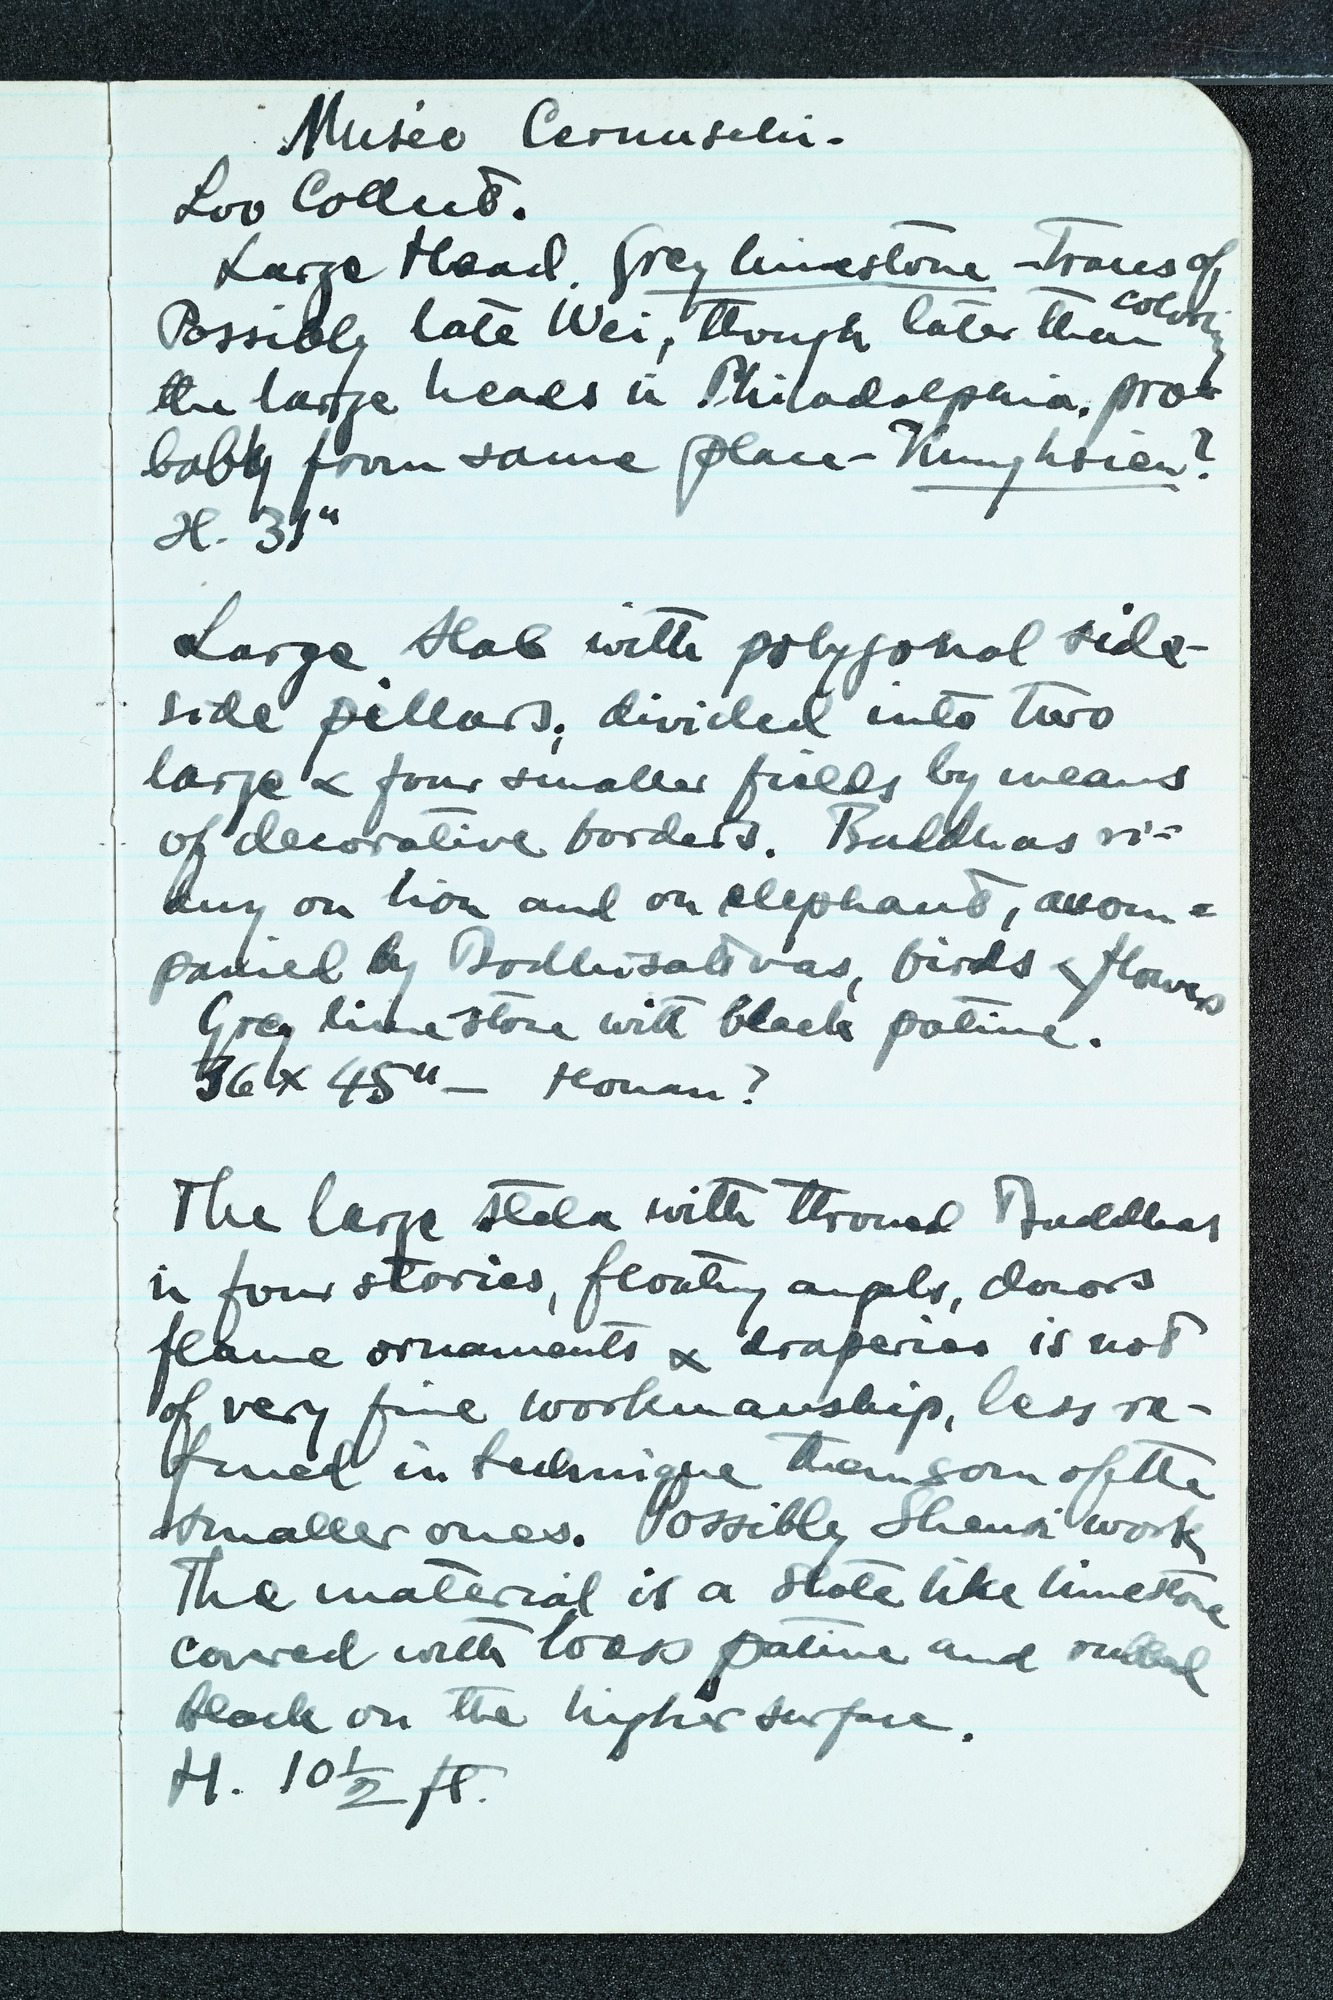 Musée Cernuschi.
Loo Collect.
Large Head. Grey limestone - traces of
coloring
Possibly late Wei, though later than
the large heads in Philadelphia. pro-
bably from same place - Kunghsien?
H. 31"
Large slab with polygonal side-
side pillars, divided into two
large & four smaller fields by means
of decorative borders. Buddhas ri-
ding on lion and on elephant, accom-
panied by Bodhisattvas, birds & flowers
Grey limestone with black patine.
36 x 45" - Honan?
The large stela with throned Buddhas
in four stories, floating angels, donors
flame ornaments & draperies is not
of very fine workmanship, less re-
fined in technique than som of the
smaller ones. Possibly Shensi work
The material is a slate like limestone
covered with loess patine and rubbed
black on the higher surface.
H. 10 1/2 ft.